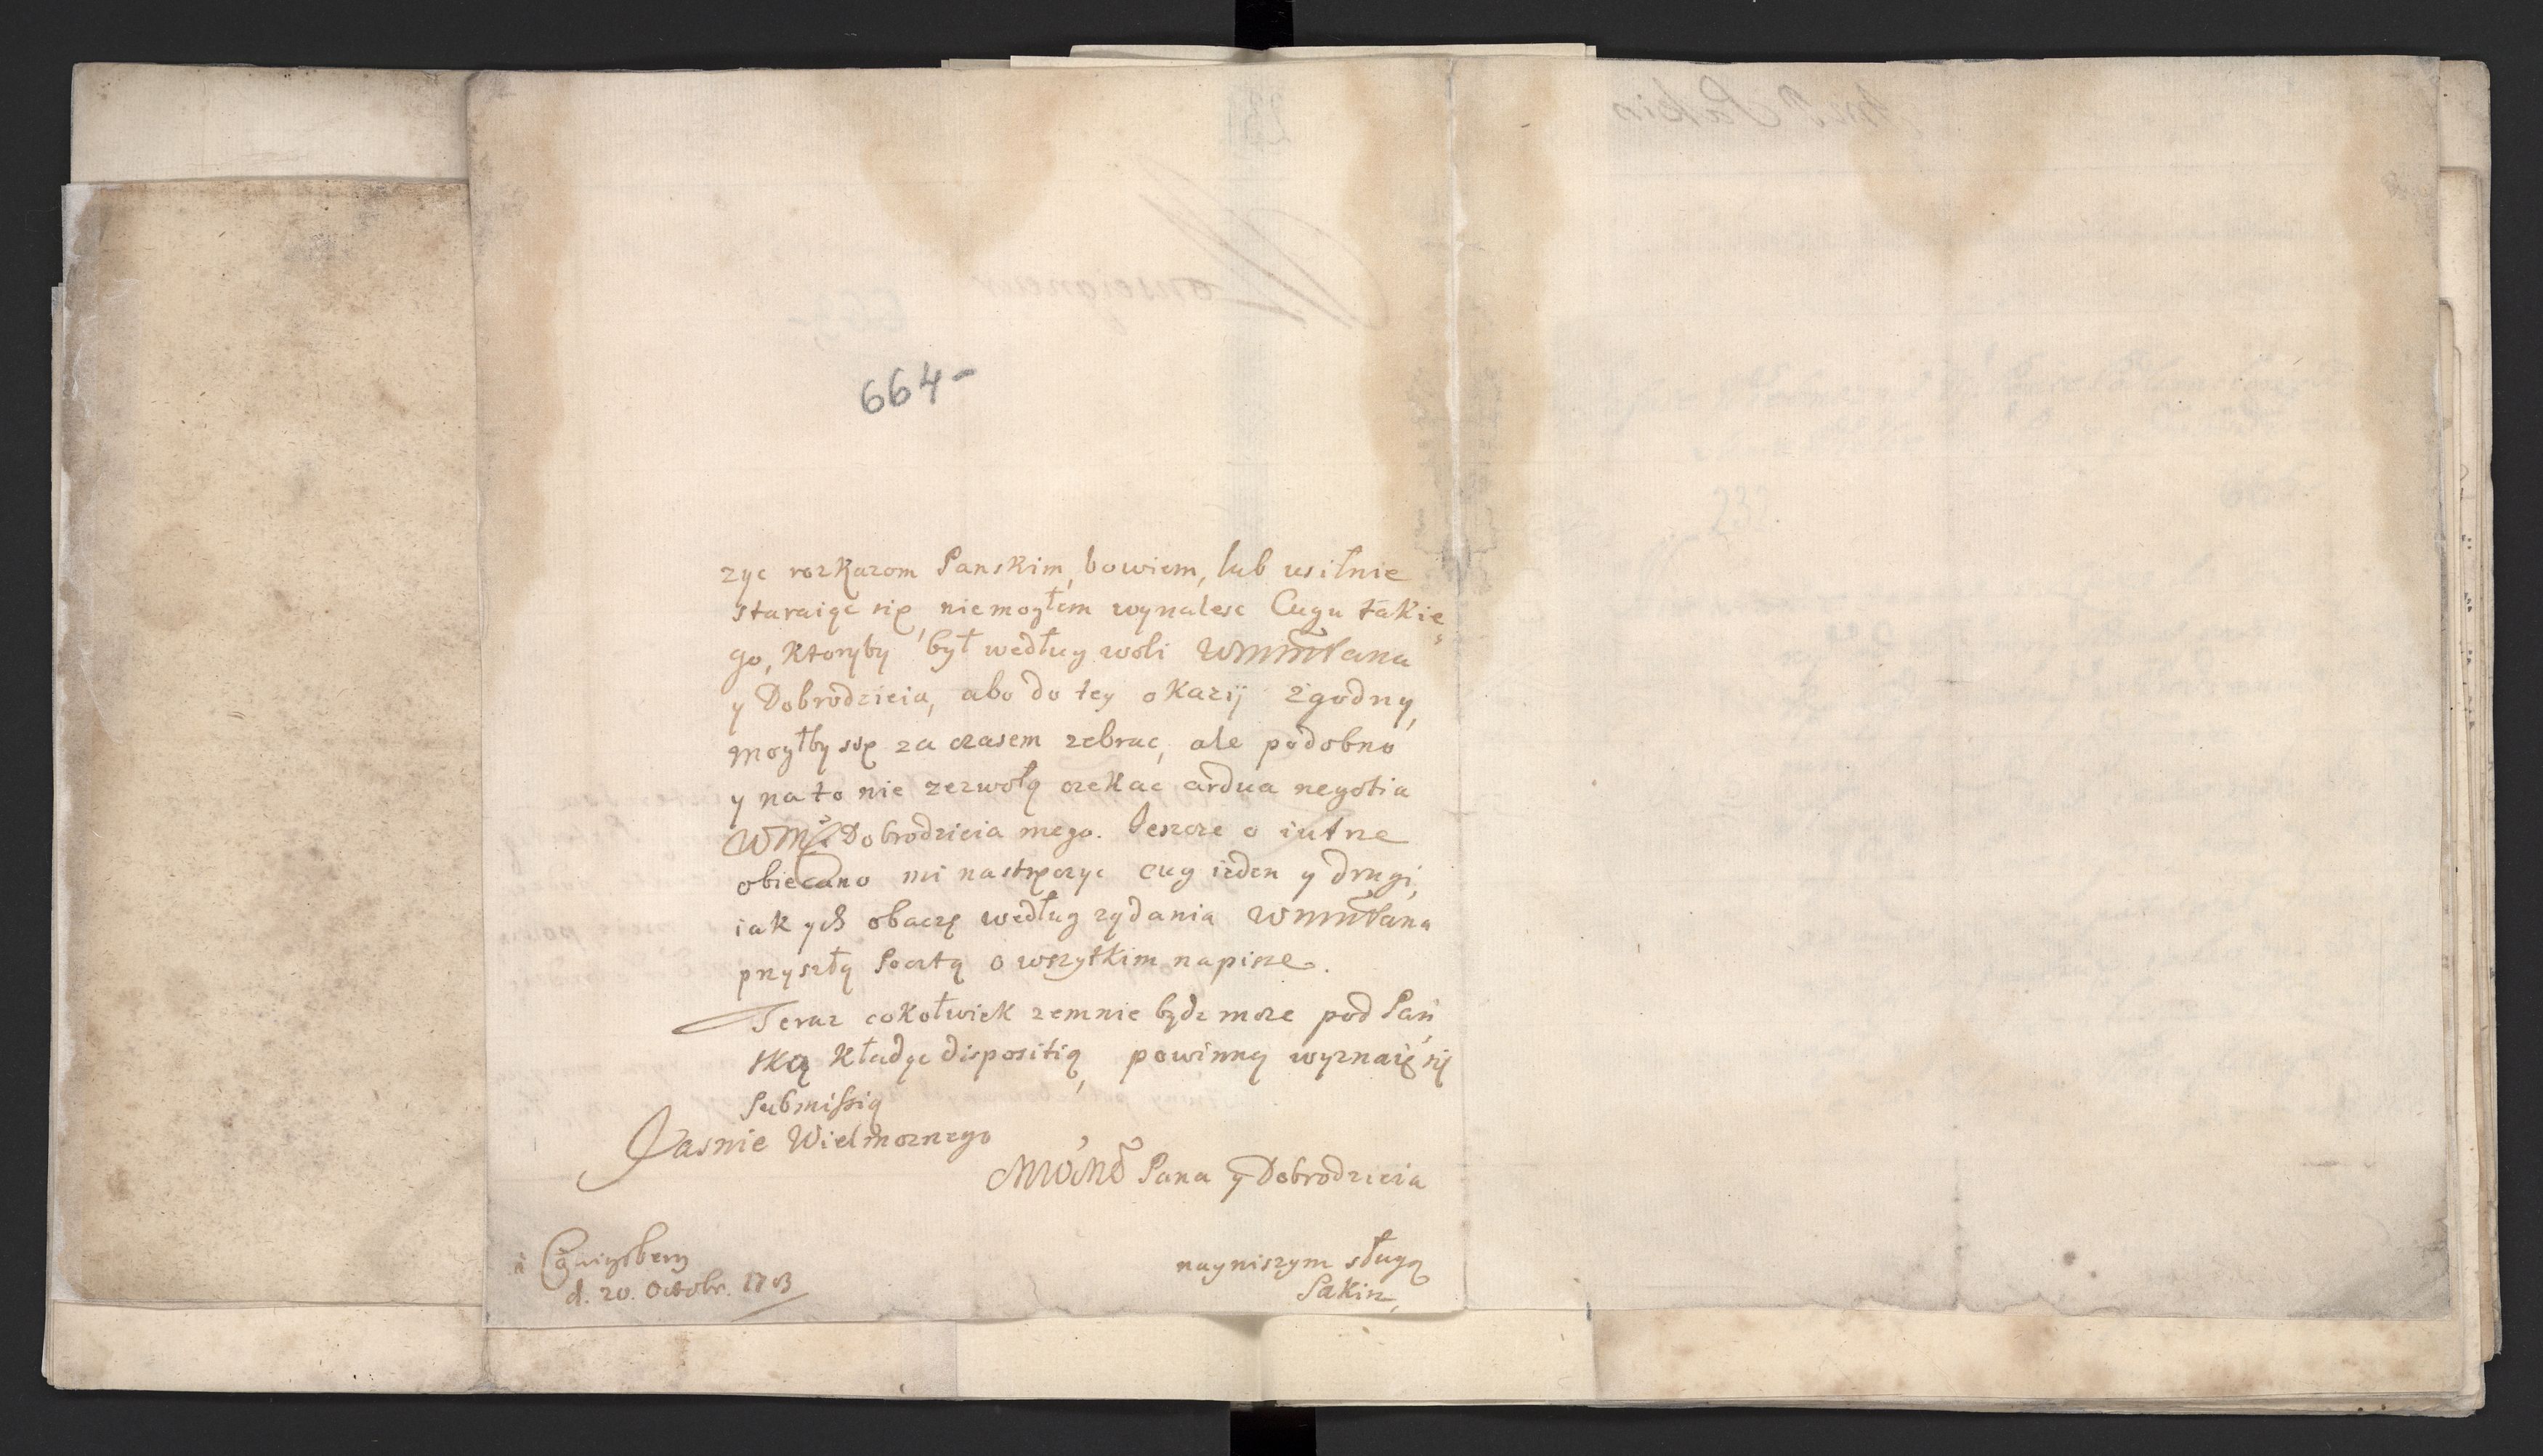 664-
zyc rozkazom Panskim, bowiem, lub usiłnie
staraiąc się, niemogłem wynalesc Cugu takie
go, ktoryby był według woli WMMPana
y Dobrodzieia, abo do tey okazij zgodny,
mogłby się za czasem zebrac, ale podobno
y na to nie zezwolą czekac ardua negotia
Dobrodzieia mego. Jeszcze o iutrze
obiecano mi nastręczyc cug ieden y drugi,
iak ych obaczę według ządania WMMPana
przyszłą Pocztą o wszytkim napisze.
Teraz cokolwiek zemnie bydz moze pod Pan
ską kładąc dispositią, powinną wyznaię się
submissią
Jasnie Wielmoznego
Pana y Dobrodzieia
à Cönigsberg
d. 20. Octobr. 1703
nayniszym sługą
Sakin